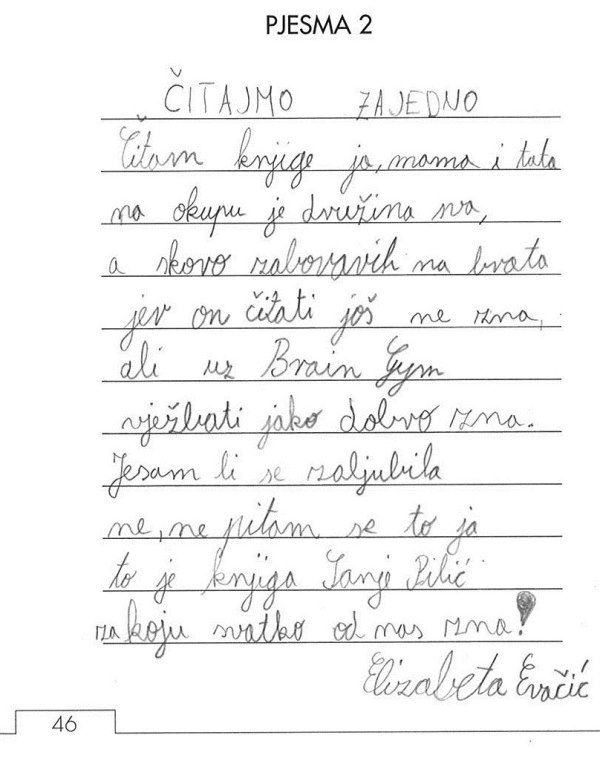 PJESMA 2
ČITAJMO ZAJEDNO
Čitam knjige ja, mama i tata
na okupu je družina sva,
a skoro zaboravih na brata
jer on čitati još ne zna,
ali uz Brain Gym
vježbati jako dobro zna.
Jesam li se zaljubila
ne, ne pitam se to ja
to je knjiga Sanje Pilić
za koju svatko od nas zna!
Elizabeta Evačić
46